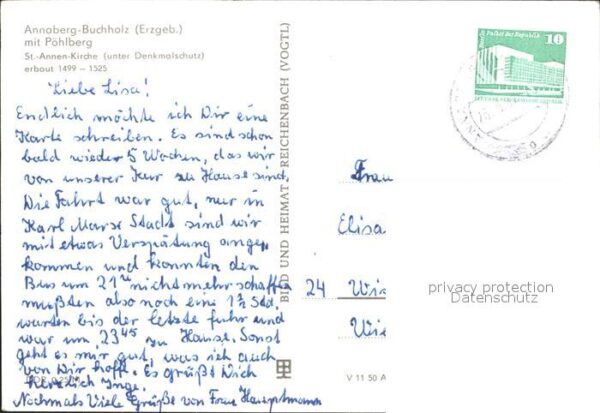 Annaberg-Buchholz (Erzgeb.)
mit Pöhlberg
St.-Annen-Kirche (unter Denkmalschutz)
erbaut 1499 – 1525
Liebe Lisa!
Endlich möchte ich Dir eine
Karte schreiben. Es sind schon
bald wieder 5 Wochen, das wir
von unserer Kur zu Hause sind.
Die Fahrt war gut, nur in
Karl Marx Stadt sind wir
mit etwas Verspätung ange,
kommen und konnten den
Bus um 21 nicht mehr schaffen
mußten also noch eine 1½ Std.
warten bis der letzte fuhr und
war um 23⁴⁵ zu Hause. Sonst
geht es mir gut, was ich auch
von Dir hoffe. Es grüßt Dich
herzlich Inge.
Nochmals Viele Grüße von Frau Hauptmann
BILD UND HEIMAT REICHENBACH (VOGTL)
V 11 50 A
10
Palast der Republik
Frau
Elisa
24 Wie
Wie
privacy protection
Datenschutz